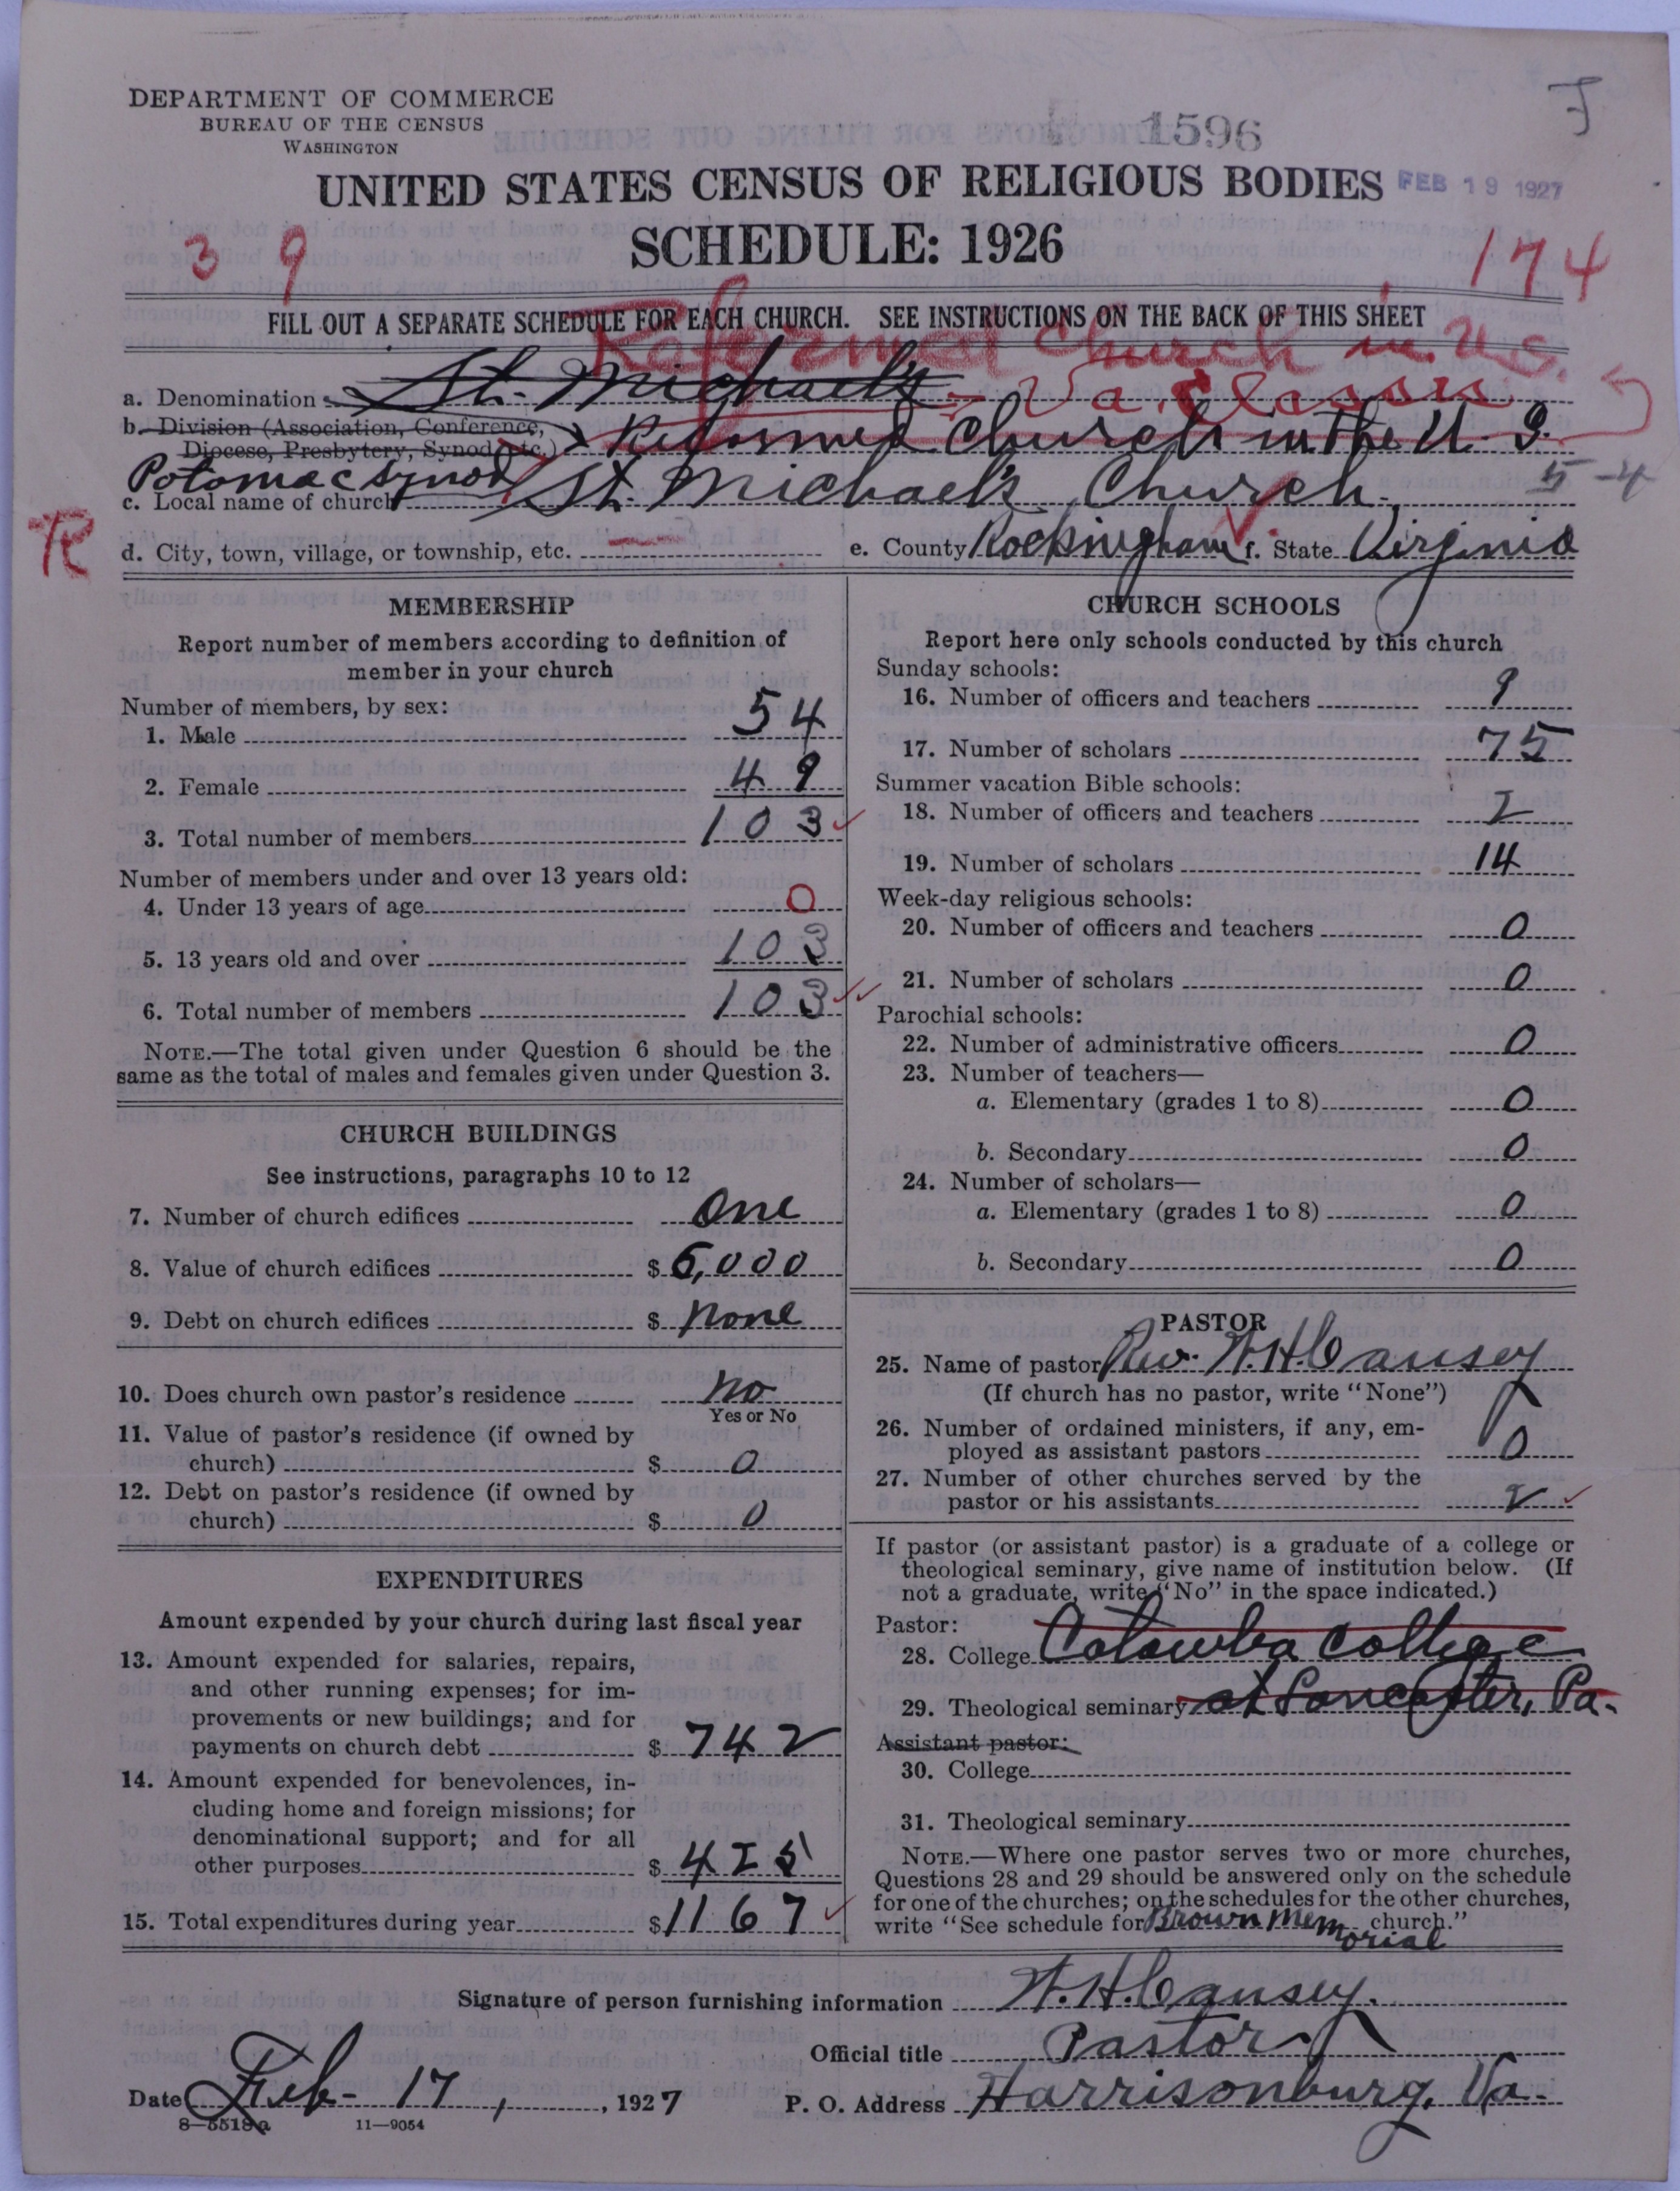 DEPARTMENT OF COMMERCE
BUREAU OF THE CENSUS
WASHINGTON
1596
J
UNITED STATES CENSUS OF RELIGIOUS BODIES
FEB 19 1927
SCHEDULE: 1926
3 9
174
FILL OUT A SEPARATE SCHEDULE FOR EACH CHURCH. SEE INSTRUCTIONS ON THE BACK OF THIS SHEET
Reformed Church in U.S.
a. Denomination St. Michael's Va. Classis
b. Division (Association, Conference, Diocese, Presbytery, Synod, etc.) Reformed Church in the U. S.
Potomac Synod
5-4
c. Local name of church St. Michael's Church.
R
d. City, town, village, or township, etc. e. County Rockingham f. State Virginia
MEMBERSHIP
Report number of members according to definition of
member in your church
Number of members, by sex:
1. Male 54
2. Female 49
3. Total number of members 103
Number of members under and over 13 years old:
4. Under 13 years of age 0
5. 13 years old and over 103
6. Total number of members 103
NOTE.—The total given under Question 6 should be the
same as the total of males and females given under Question 3.
CHURCH BUILDINGS
See instructions, paragraphs 10 to 12
7. Number of church edifices One
8. Value of church edifices $ 6,000
9. Debt on church edifices $ None
10. Does church own pastor's residence No
Yes or No
11. Value of pastor's residence (if owned by
church) $ 0
12. Debt on pastor's residence (if owned by
church) $ 0
EXPENDITURES
Amount expended by your church during last fiscal year
13. Amount expended for salaries, repairs,
and other running expenses; for im-
provements or new buildings; and for
payments on church debt $ 742
14. Amount expended for benevolences, in-
cluding home and foreign missions; for
denominational support; and for all
other purposes $ 425
15. Total expenditures during year $ 1167
CHURCH SCHOOLS
Report here only schools conducted by this church
Sunday schools:
16. Number of officers and teachers 9
17. Number of scholars 75
Summer vacation Bible schools:
18. Number of officers and teachers 2
19. Number of scholars 14
Week-day religious schools:
20. Number of officers and teachers 0
21. Number of scholars 0
Parochial schools:
22. Number of administrative officers 0
23. Number of teachers—
a. Elementary (grades 1 to 8) 0
b. Secondary 0
24. Number of scholars—
a. Elementary (grades 1 to 8) 0
b. Secondary 0
PASTOR
25. Name of pastor Rev. W. H. Causey
(If church has no pastor, write "None")
26. Number of ordained ministers, if any, em-
ployed as assistant pastors 0
27. Number of other churches served by the
pastor or his assistants 2
If pastor (or assistant pastor) is a graduate of a college or
theological seminary, give name of institution below. (If
not a graduate, write "No" in the space indicated.)
Pastor:
28. College Catawba College
29. Theological seminary at Lancaster, Pa.
Assistant pastor:
30. College
31. Theological seminary
NOTE.—Where one pastor serves two or more churches,
Questions 28 and 29 should be answered only on the schedule
for one of the churches; on the schedules for the other churches,
write "See schedule for Brown Memorial church."
Signature of person furnishing information W. H. Causey.
Official title Pastor
Date Feb- 17, 1927 P. O. Address Harrisonburg, Va.
8—5518a 11—9054